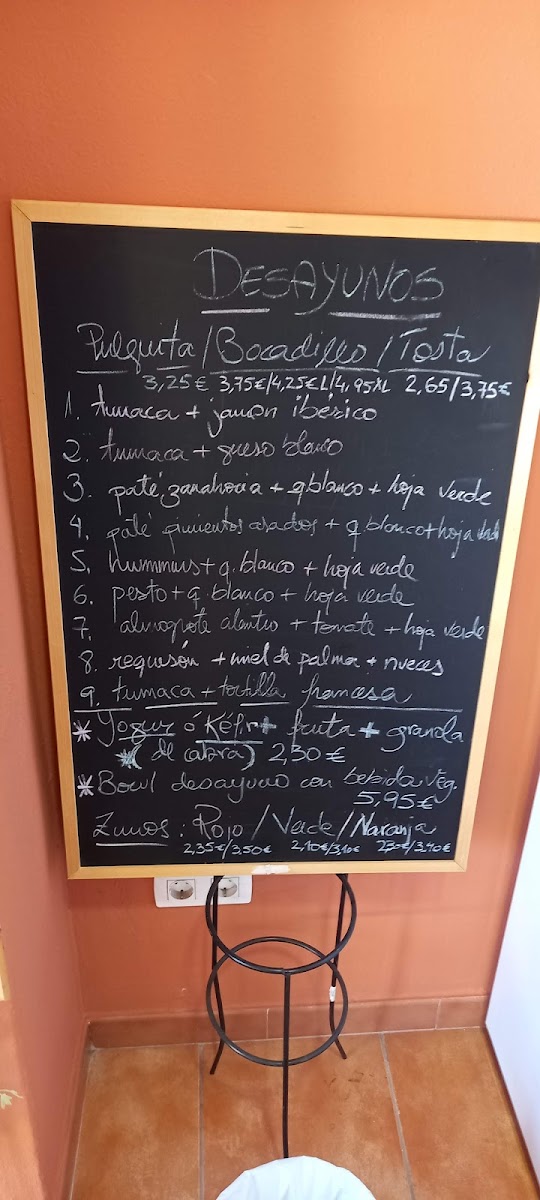 DESAYUNOS
Pulguita / Bocadillo / Tosta
3,25€ 3,75€/4,25€L/4,95XL 2,65/3,75€
1. tumaca + jamón ibérico
2. tumaca + queso blanco
3. paté zanahoria + q blanco + hoja verde
4. paté pimientos asados + q blanco + hoja verde
5. hummus + q. blanco + hoja verde
6. pesto + q. blanco + hoja verde
7. almogrote + tomate + hoja verde
8. requesón + miel de palma + nueces
9. tumaca + tortilla francesa
* Yogur ó Kéfir + fruta + granola
*(de cabra) 2,30€
* Bowl desayuno con bebida veg.
5,95€
Zumos: Rojo / Verde / Naranja
2,35€/3,50€ 2,10€/3,10€ /3,40€